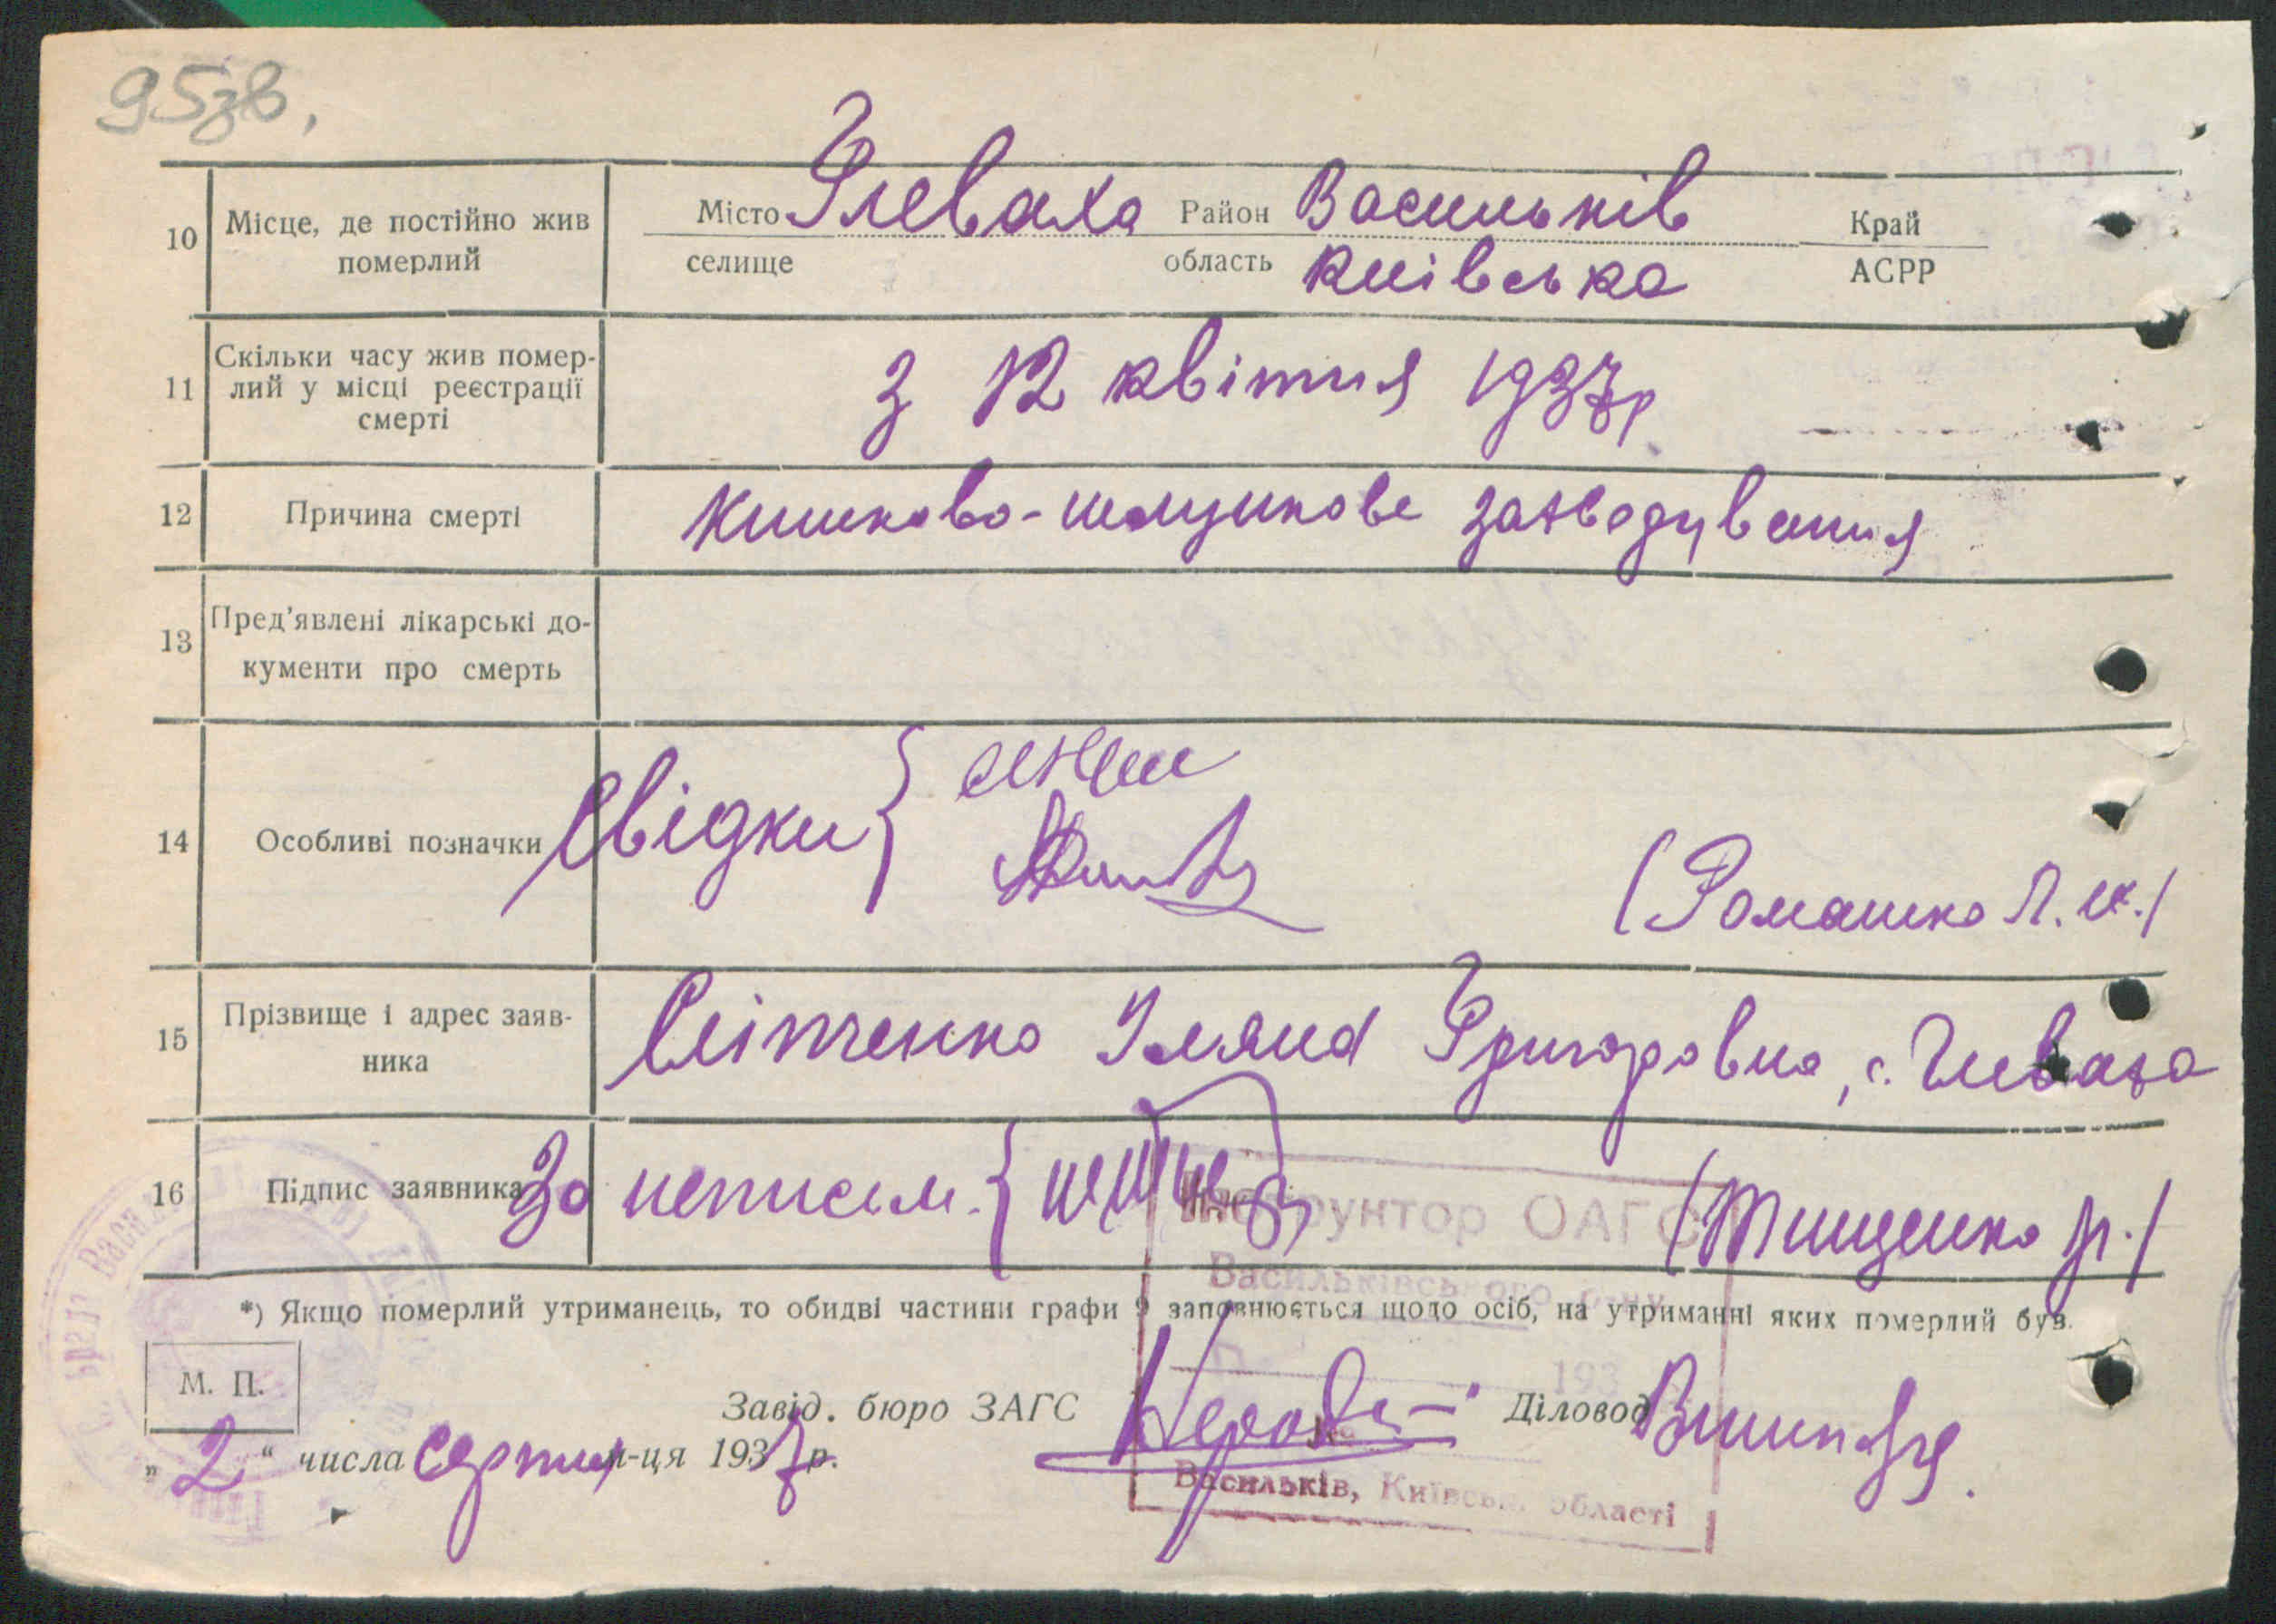 95зв.
10 Місце, де постійно жив померлий
Місто Глеваха Район Васильків Край
селище область київська АСРР
11 Скільки часу жив помер-
лий у місці реєстрації
смерті
з 12 квітня 1937р
12 Причина смерті Кишково-шлункове
13 Пред'явлені лікарські до-
кументи про смерть
14 Особливі позначки Свідки {
(Ромашко Л. И.)
15 Прізвище і адрес заяв-
ника
Сліпченко Уляна Григоровна, с. Глеваха
16 Підпис заявника За неписьм. {
(Тищенко
Інструктор ОАГС
Васильківського р-ну
*) Якщо померлий утриманець, то обидві частини графи 9 заповнюється щодо осіб, на утриманні яких померлий був.
193
М. П.
Завід. бюро ЗАГС Діловод
„2“ числа серпня м-ця 1937 р.
Васильків, Київськ. області